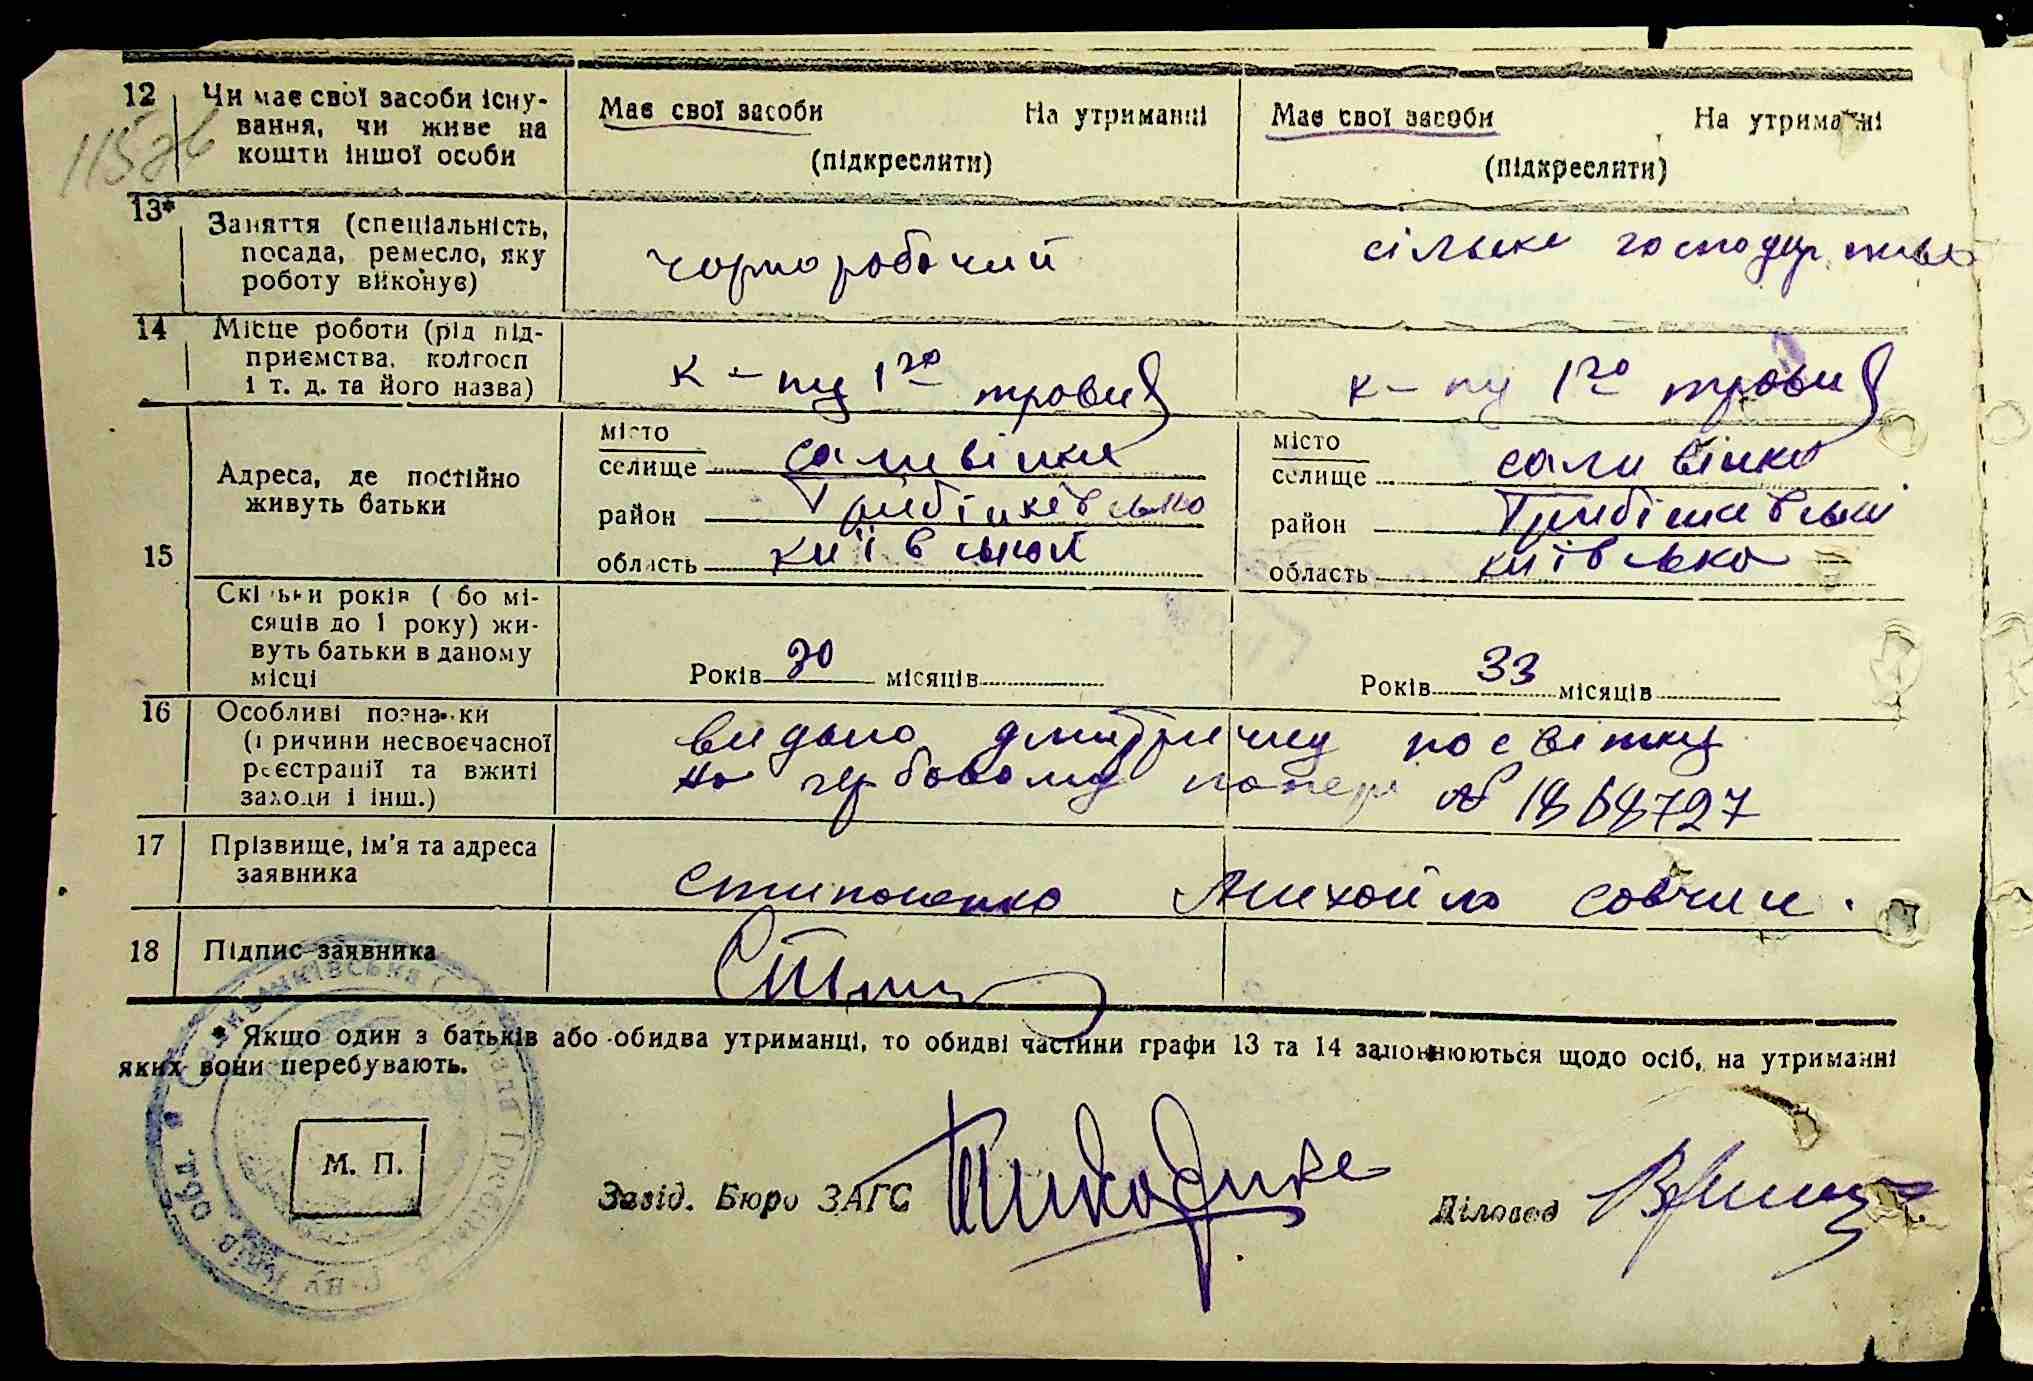 12 Чи має свої засоби існу-
вання, чи живе на
кошти іншої особи
Має свої засоби На утриманні
(підкреслити)
Має свої засоби На утриманні
(підкреслити)
13* Заняття (спеціальність,
посада, ремесло, яку
роботу виконує)
чорноробочий
сільське господарство
14 Місце роботи (рід під-
приємства, колгосп
і т. д. та його назва)
к-пу 1го травня
к-пу 1го травня
15 Адреса, де постійно
живуть батьки
місто
селище саливінки
район
область київській
місто
селище саливінки
район
область київська
Скільки років (або мі-
сяців до 1 року) жи-
вуть батьки в даному
місці
Років 30 місяців
Років 33 місяців
16 Особливі познаки
(причини несвоєчасної
реєстрації та вжиті
заходи і інш.)
видано посвітку
на гербовому папері №
17 Прізвище, ім'я та адреса
заявника
Михайло
18 Підпис заявника
* Якщо один з батьків або обидва утриманці, то обидві частини графи 13 та 14 заповнюються щодо осіб, на утриманні
яких вони перебувають.
М. П.
Завід. Бюро ЗАГС
Діловод